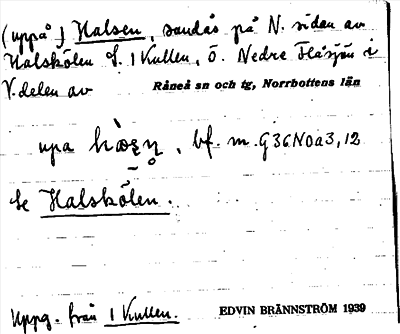 (uppå) Halsen, sandås på N. sidan av
Halskölen S. 1 Kullen, Ö. Nedre Flåsjön i
V. delen av Råneå sn och tg, Norrbottens län
upa , bf. m. G36N0a3,12
Se Halskölen.
Uppg. från 1 Kullen. EDVIN BRÄNNSTRÖM 1939